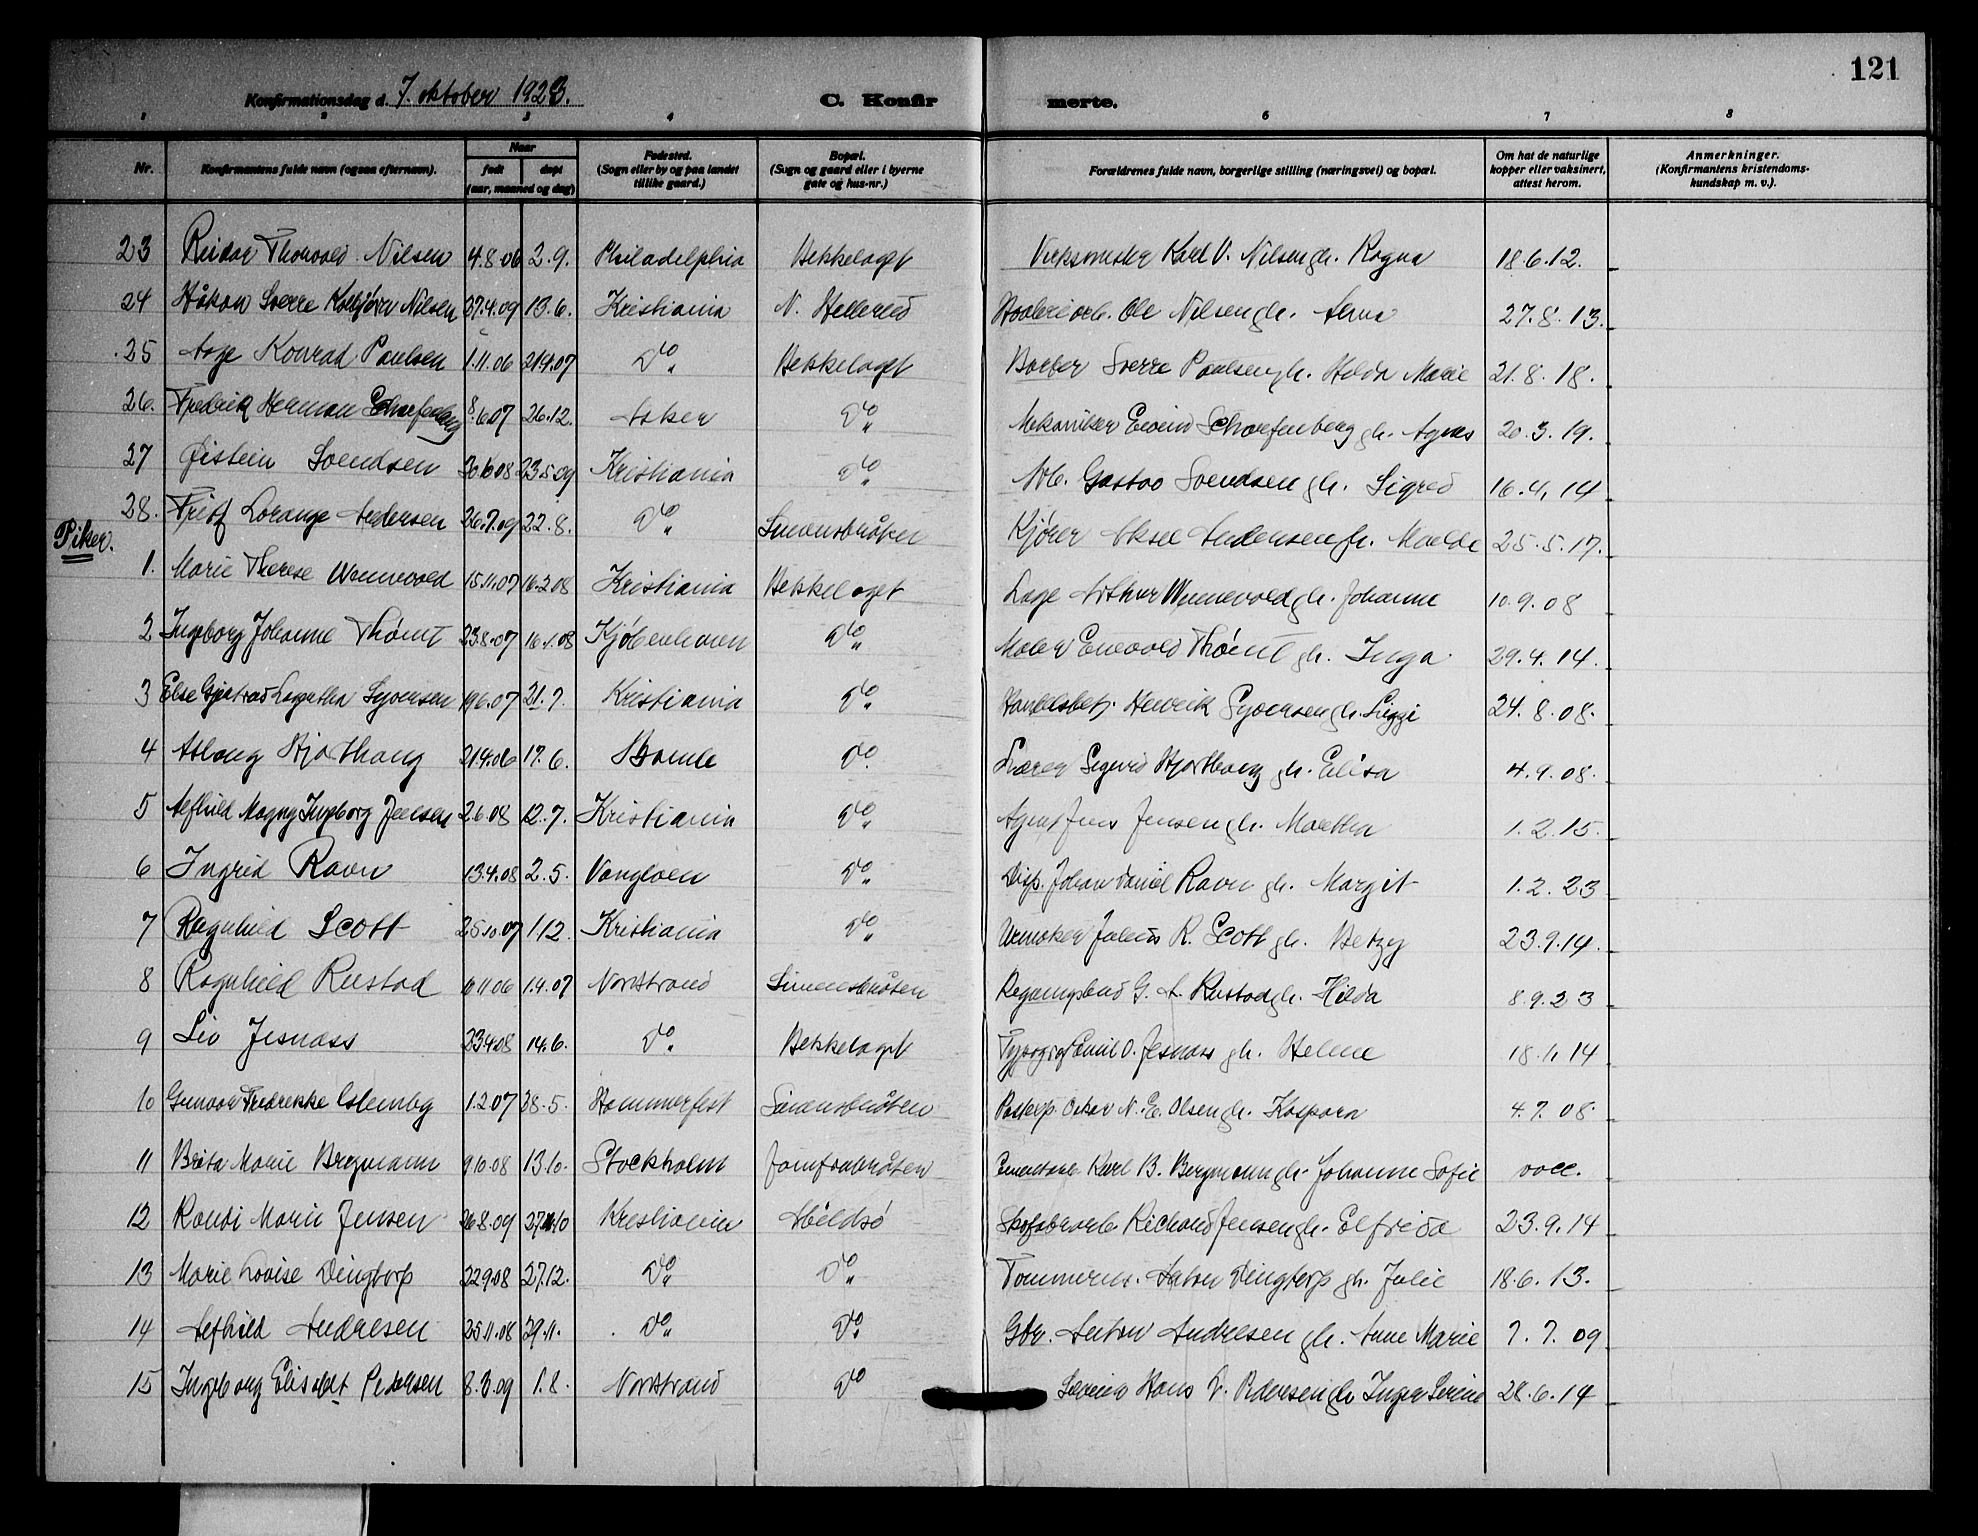 121
Konfirmationsdag d. 7. oktober 1923. C. Konfirmerte.
1 2 3 4 6 7 8
Nr. Konfirmantens fulde navn (ogsaa efternavn). Naar født døpt (aar, maaned og dag) Fødested. (Sogn eller by og paa landet tillike gaard.) Bopæl. (Sogn og gaard eller i byerne gate og hus-nr.) Forældrenes fulde navn, borgerlige stilling (næringsvei) og bopæl. Om hat de naturlige kopper eller vaksinert, attest herom. Anmerkninger. (Konfirmantens kristendoms-kundskap m. v.).
23 Reidar Thorvald Nilsen 4.8.06 2.9. Philadelphia Bekkelaget Verksmester Karl V. Nilsen gh. Ragna 18.6.12.
24 Håkon Sverre Kolbjørn Nilsen 27.4.09 13.6. Kristiania N. Hellerud Ole Nilsen gh. Anna 27.8.13.
25 Aage Konrad Paulsen 1.11.06 21.4.07 Do Bekkelaget Barber Sverre Paulsen gh. Hilda Marie 21.8.18.
26. Fredrik Herman Scharfenberg 8.6.07 26.12. Asker Do Mekaniker Eivind Scharfenberg gh. Agnes 20.3.19.
27 Øistein Svendsen 23.5.09 Kristiania Do Arb. Gustav Svendsen gh. Sigrid 16.4.14
28. Lorange Andersen 26.7.09 22.8. Do Simensbråten Kjører Aksel Andersen gh. Malde 25.5.17.
Piker.
1. Marie Therese Wennevold 15.11.07 16.2.08 Kristiania Bekkelaget Lage Arthur Wennevold gh. Johanne 10.9.08
2 Ingeborg Johanne Thømt 23.8.07 16.1.08 Kjøbenhavn Do Maler Enevold Thømt gh. Inga 29.4.14.
3 Else Gjertrud Lagertha Syversen 19.6.07 21.7. Kristiania Do Handelsbetj. Henrik Syversen gh. Siggi 24.8.08.
4 Aslaug Hjorthaug 21.4.06 17.6. Bamle Do Lærer Sigurd Hjorthaug gh. Elisa 4.9.08.
5 Alfhild Magny Ingeborg Jensen 2.6.08 12.7. Kristiania Do Agent Jens Jensen gh. Martha 1.2.15.
6 Ingrid Ravn 13.4.08 2.5. Vangløen Do Disp. Johan Daniel Ravn gh. Margit 1.2.23
7 Ragnhild Scott 25.10.07 1.12. Kristiania Do Urmaker Julius R. Scott gh. Betzy 23.9.14.
8 Ragnhild Rustad 11.06 1.4.07 Nordstrand Simensbråten Regningsbud G. A. Rustad gh. Hilda 8.9.23
9 Liv Jesnæss 23.4.08 14.6. Do Bekkelaget Typograf Emil O. Jesnæss gh. Helene 18.1.14
10 Gunvor Fredrikke 1.2.07 28.5. Hammerfest Simensbråten Postexp. Oskar N. E. Olsen gh. Kaspara 4.7.08.
11 Brita Marie Bergmann 9.10.08 13.10. Stockholm Jomfrubråten Karl B. Bergmann gh. Johanne Sofie vacc.
12 Randi Marie Jensen 26.8.09 27.10 Kristiania Abildsø Skofabrarb. Richard Jensen gh. Elfrida 23.9.14
13 Marie Lovise Dingtorp 22.9.08 27.12. Do Do Tømmerm. Anton Dingtorp gh. Julie 18.6.13.
14 Alfhild Andresen 25.11.08 29.11. Do Do Gbr. Anton Andresen gh. Anne Marie 7.7.09
15 Ingeborg Elisabet Pedersen 8.3.09 1.8. Nordstrand Do Hans D. Pedersen gh. Inga Serine 28.6.14